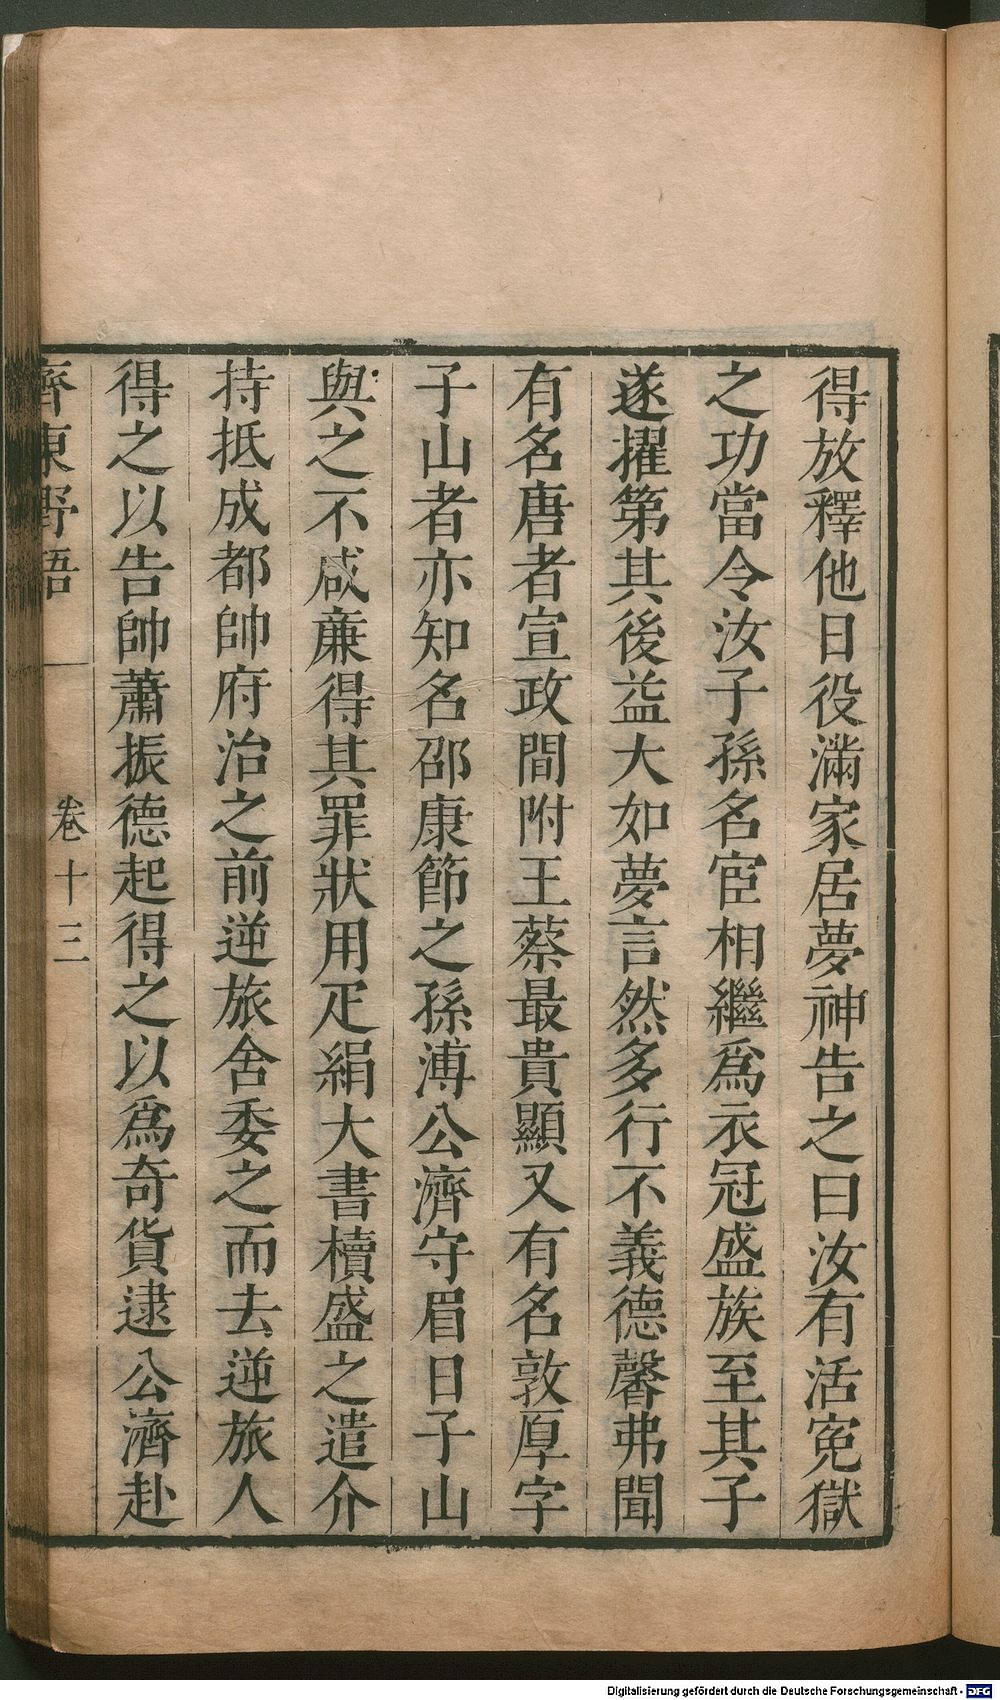 得放釋他日役滿家居夢神告之曰汝有活冤獄
之功當令汝子孫名宦相繼爲衣冠盛族至其子
遂擢第其後益大如夢言然多行不義德馨弗聞
有名唐者宣政間附王蔡最貴顯又有名敦厚字
子山者亦知名邵康節之孫溥公濟守眉日子山
與之不咸亷得其罪狀用疋絹大書櫝盛之遣介
持抵成都帥府治之前逆旅舍委之而去逆旅人
得之以告帥蕭振德起得之以爲奇貨逮公濟赴
齊東野語 卷十三
Digitalisierung gefördert durch die Deutsche Forschungsgemeinschaft - DFG